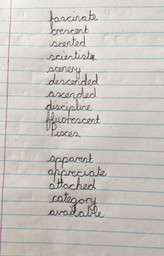 fascinate
crescent
scented
scientist
scenery
descended
ascended
discipline
fluorescent
Pisces
apparent
appreciate
attached
category
available